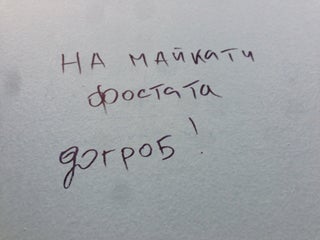 НА МАЙКАТИ
ФОСТАТА
ДОГРОБ!